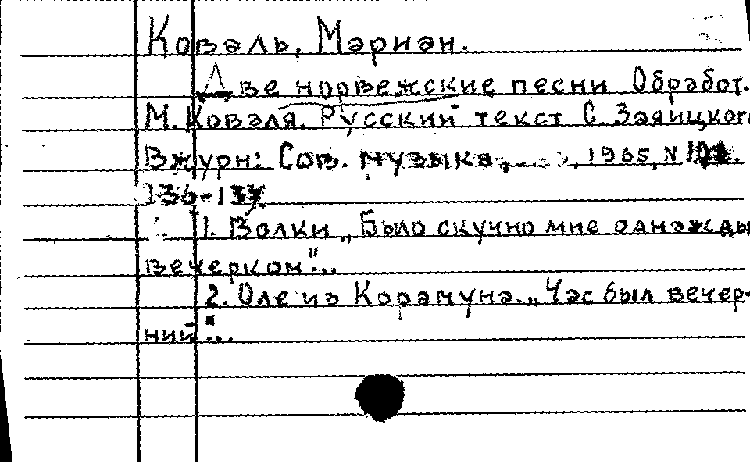 Коваль, Мариан.
Две норвежские песни Обработ.
М. Коваля. Русский текст С. Заяицкого
В журн: Сов. музыка, 1965, N
136-137
1. Волки „Было скучно мне однажды
вечерком"...
2. Оле из Корамуна. „Час был вечер-
ний"...